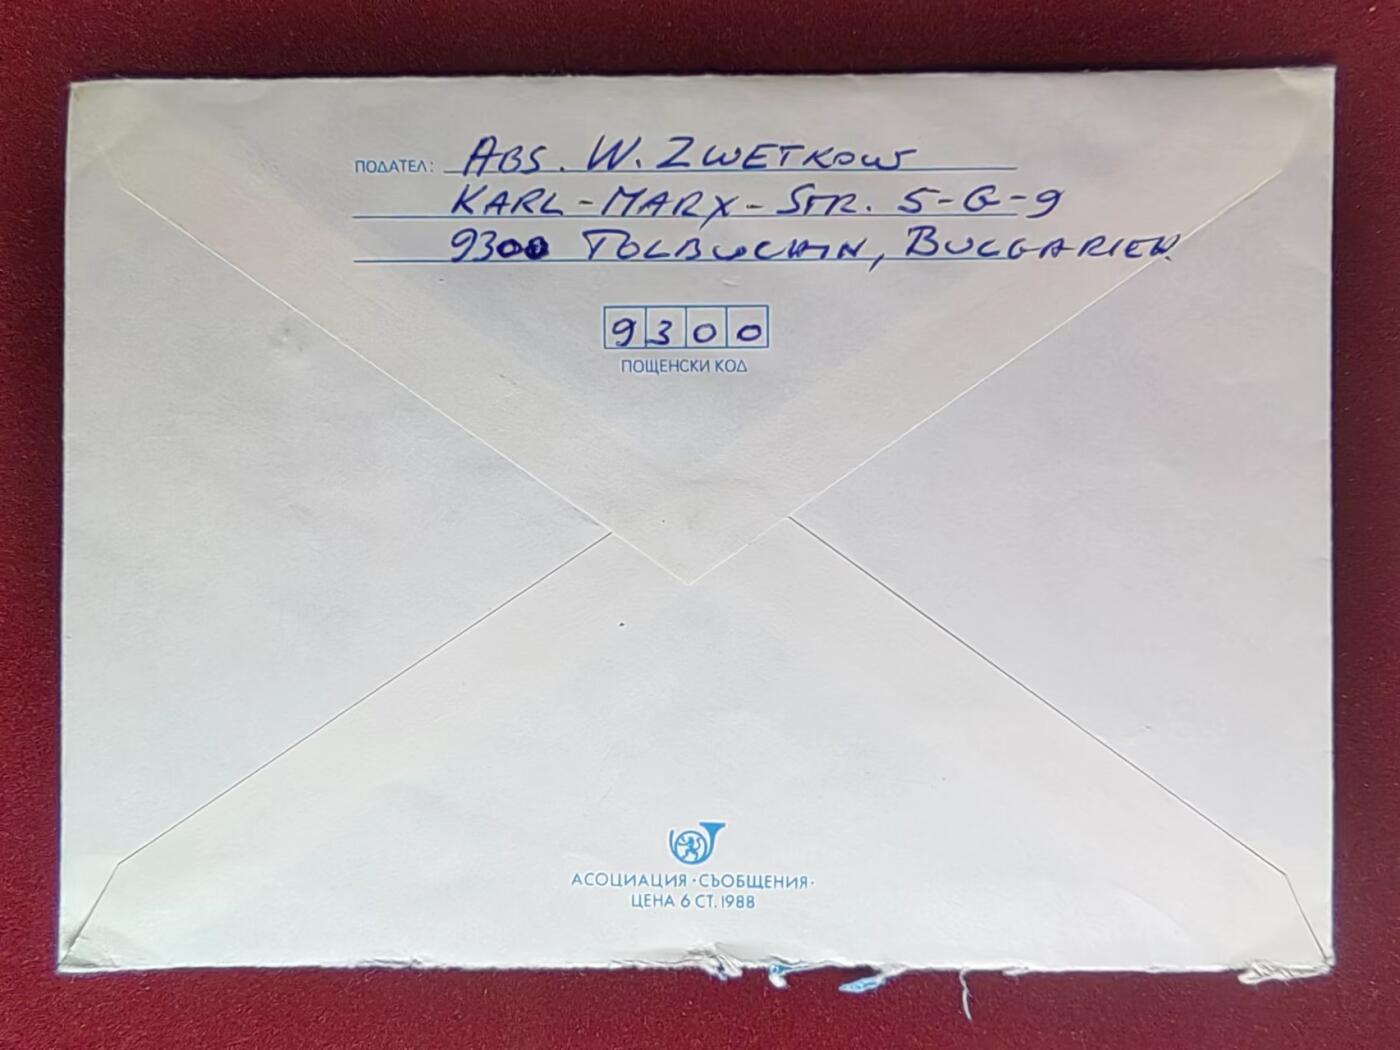 ПОДАТЕЛ: ABS. W. ZWETKOW
KARL-MARX-STR. 5-G-9
9300 TOLBUCHIN, BULGARIEN
9300
ПОЩЕНСКИ КОД
АСОЦИАЦИЯ ·СЪОБЩЕНИЯ·
ЦЕНА 6 СТ. 1988